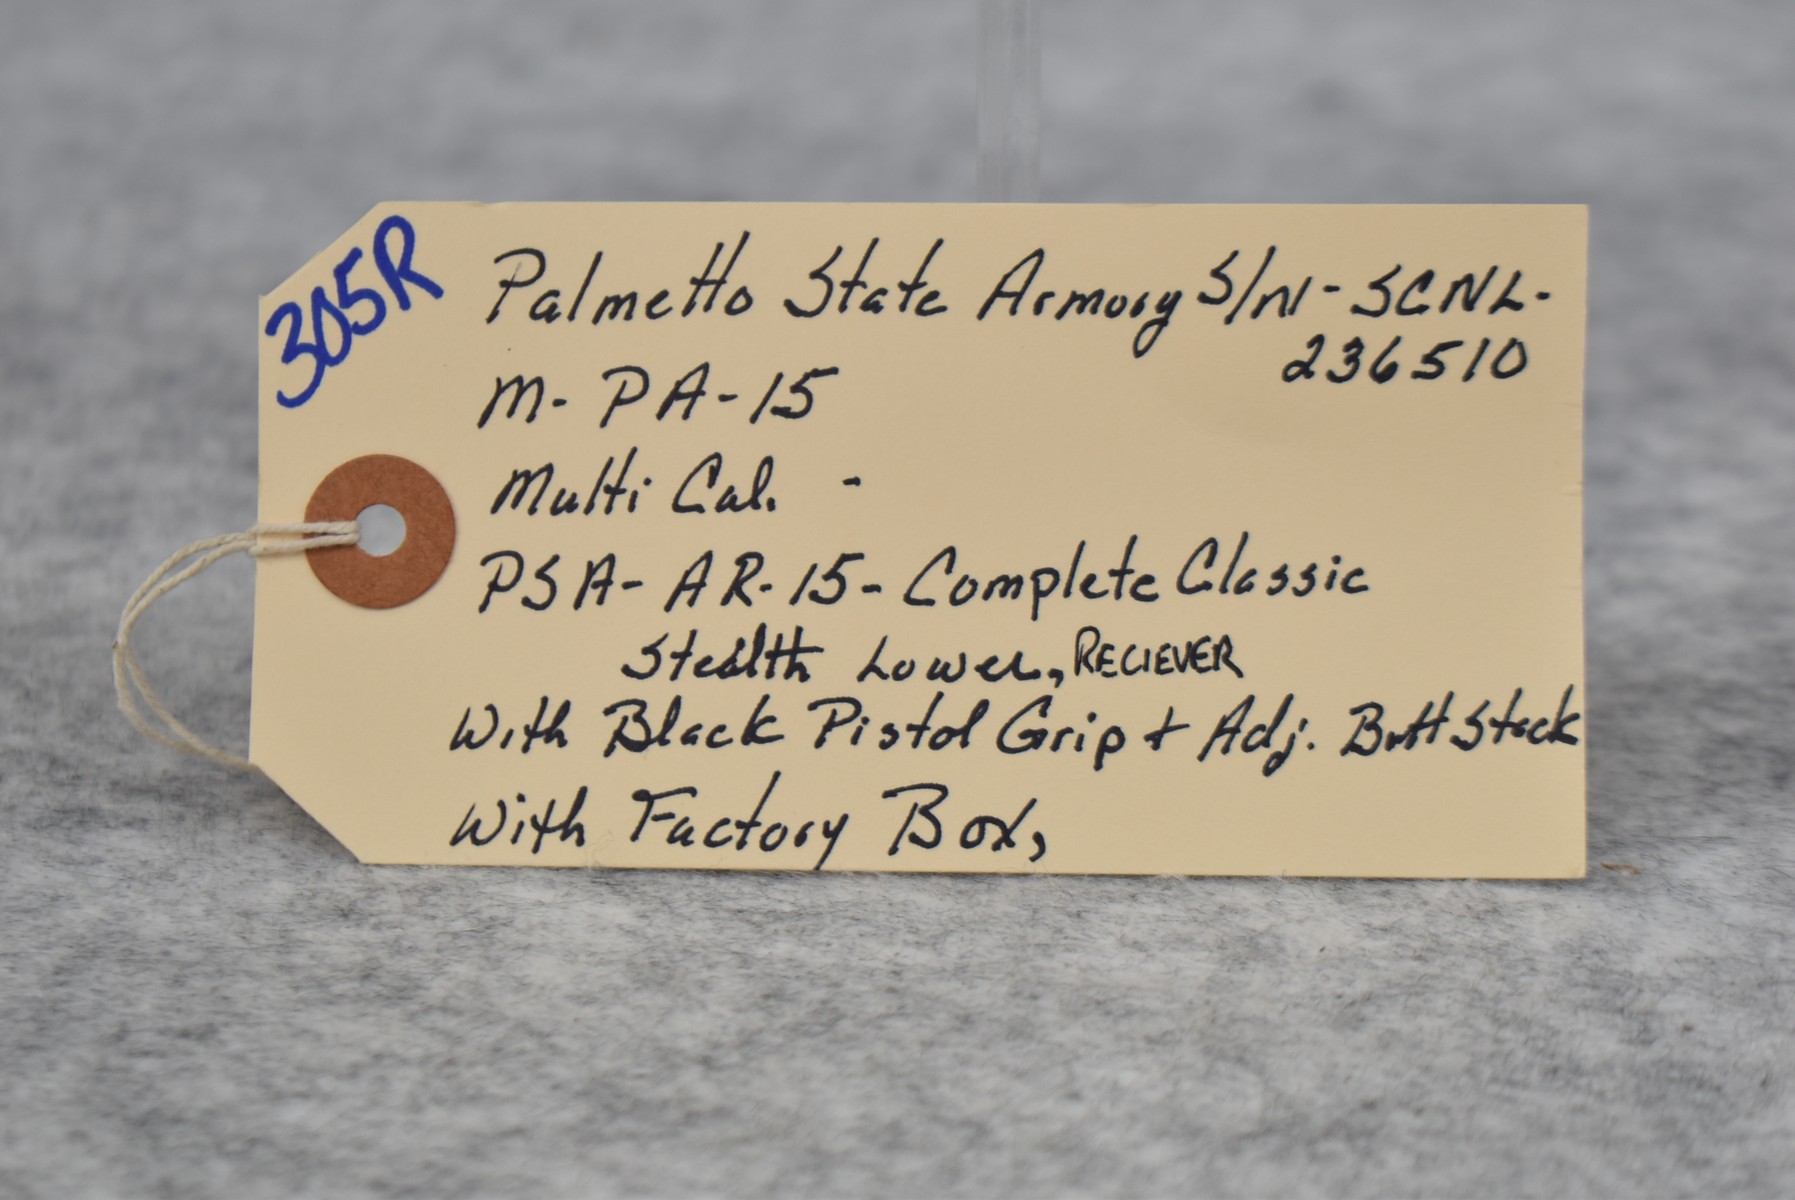 305R
Palmetto State Armory S/N - SCNL-
236510
M- PA-15
Multi Cal. -
PSA- AR-15- Complete Classic
Stealth Lower, RECIEVER
With Black Pistol Grip + Adj. Butt Stock
With Factory Box,